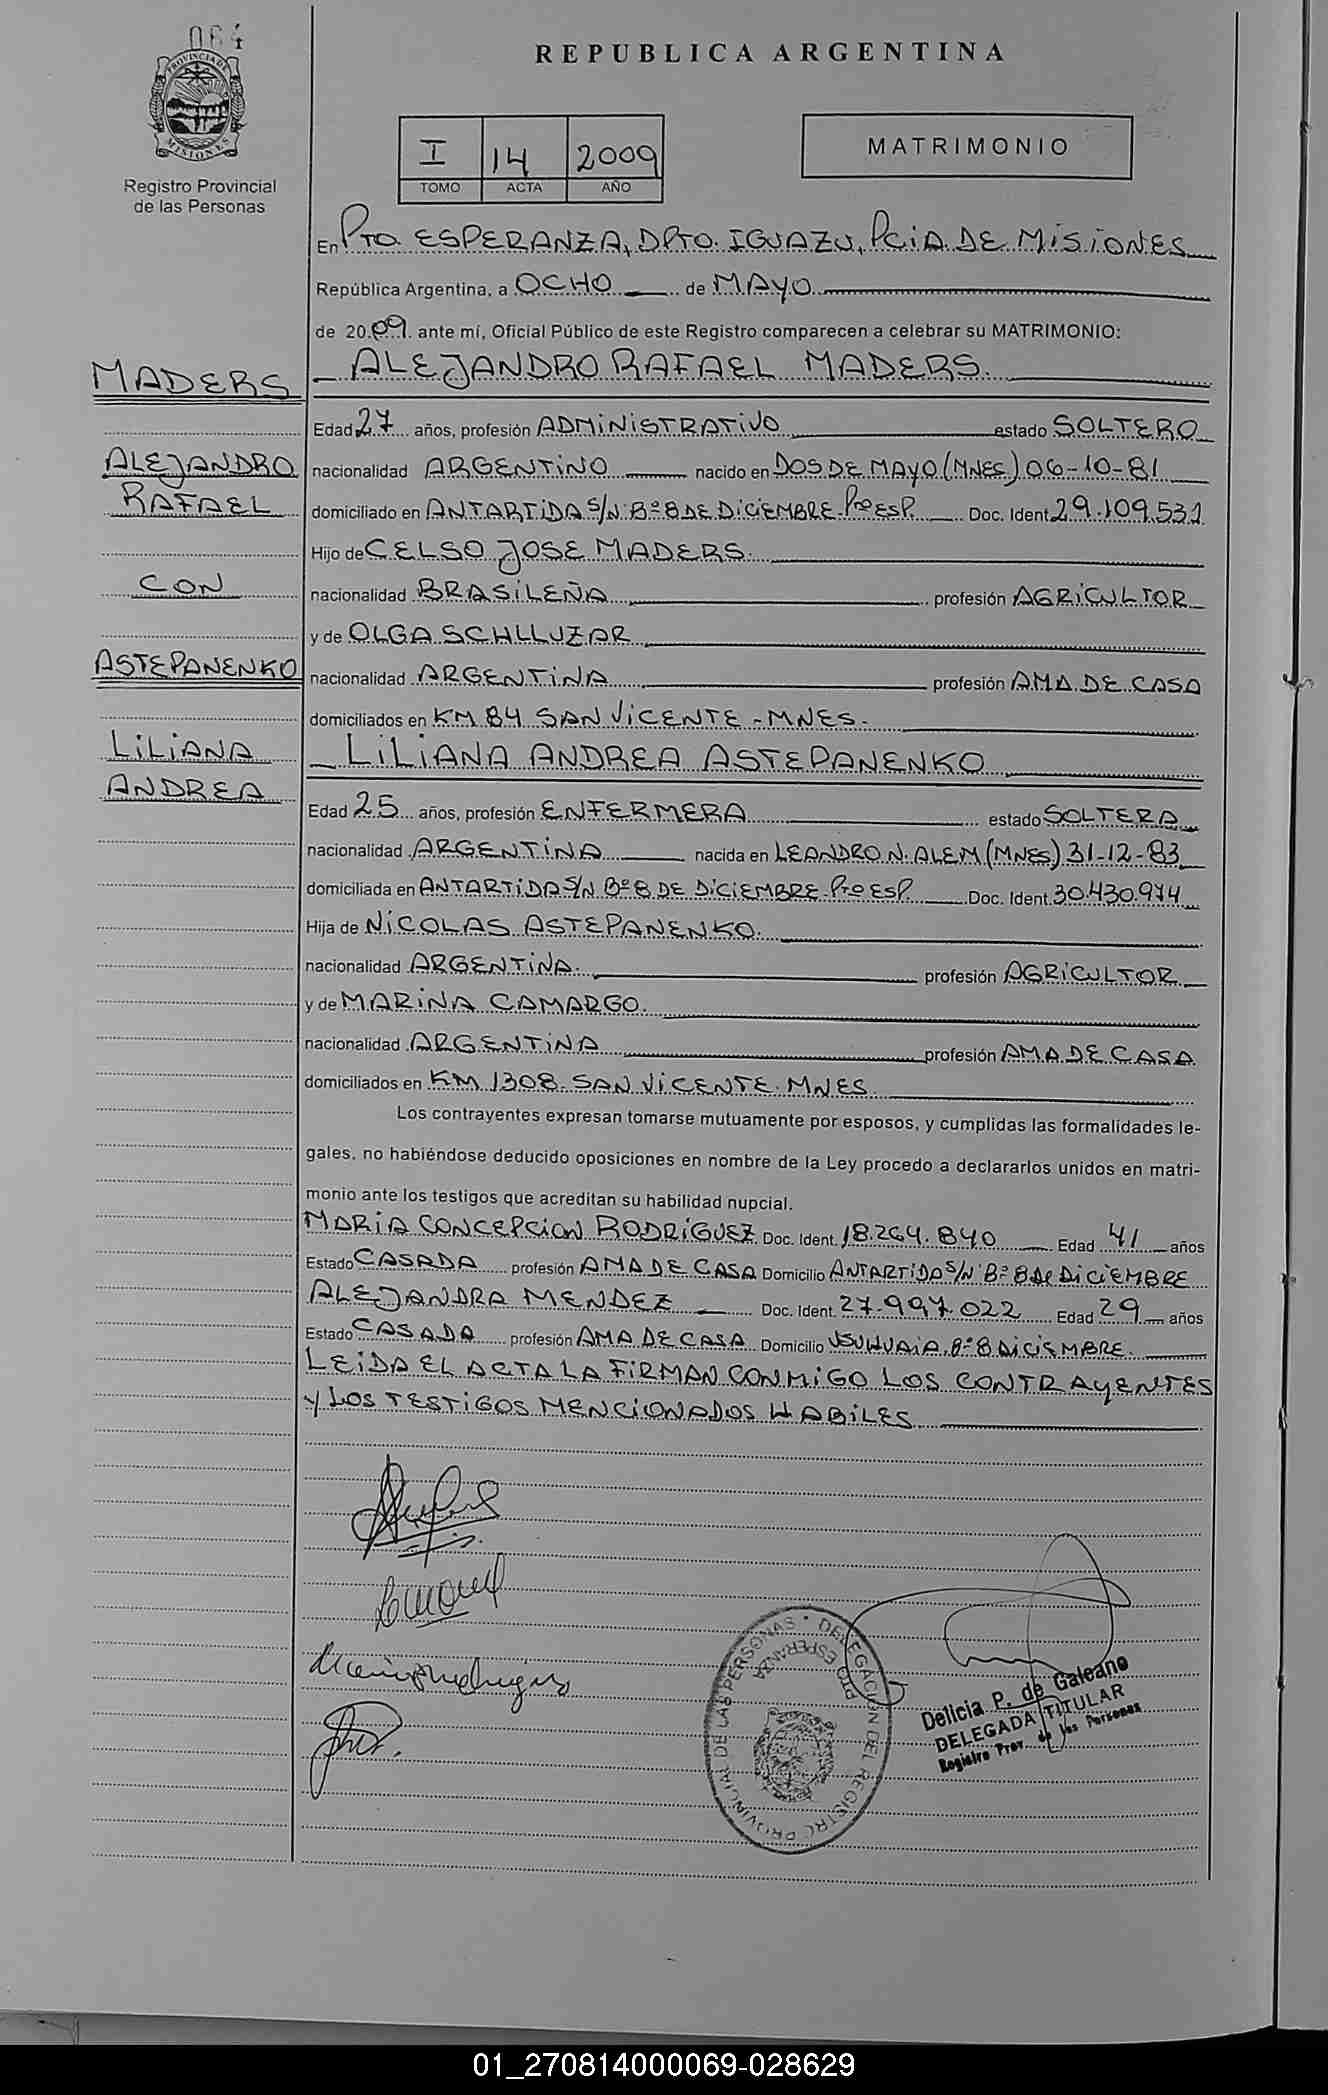 064
PROVINCIA DE
MISIONES
Registro Provincial
de las Personas
REPUBLICA ARGENTINA
I 14 2009
TOMO ACTA AÑO
MATRIMONIO
En PTO. ESPERANZA, DPTO. IGUAZU, PCIA DE MISIONES
República Argentina, a OCHO de MAYO
de 2009. ante mí, Oficial Público de este Registro comparecen a celebrar su MATRIMONIO:
MADERS
ALEJANDRO RAFAEL MADERS.
Edad 27 años, profesión ADMINISTRATIVO estado SOLTERO
ALEJANDRO
nacionalidad ARGENTINO nacido en DOS DE MAYO (MNES) 06-10-81
RAFAEL
domiciliado en ANTARTIDA S/N Bº 8 DE DICIEMBRE PTO ESP. Doc. Ident. 29.109.531
Hijo de CELSO JOSE MADERS.
CON
nacionalidad BRASILEÑA profesión AGRICULTOR
y de OLGA SCHLLUZAR
ASTEPANENKO
nacionalidad ARGENTINA profesión AMA DE CASA
domiciliados en KM 84 SAN VICENTE - MNES.
LILIANA
LILIANA ANDREA ASTEPANENKO
ANDREA
Edad 25 años, profesión ENFERMERA estado SOLTERA
nacionalidad ARGENTINA nacida en LEANDRO N. ALEM (MNES) 31-12-83
domiciliada en ANTARTIDA S/N Bº 8 DE DICIEMBRE PTO ESP. Doc. Ident. 30.430.974
Hija de NICOLAS ASTEPANENKO.
nacionalidad ARGENTINA. profesión AGRICULTOR
y de MARINA CAMARGO.
nacionalidad ARGENTINA profesión AMA DE CASA
domiciliados en KM 1308. SAN VICENTE. MNES
Los contrayentes expresan tomarse mutuamente por esposos, y cumplidas las formalidades le-
gales, no habiéndose deducido oposiciones en nombre de la Ley procedo a declararlos unidos en matri-
monio ante los testigos que acreditan su habilidad nupcial.
MARIA CONCEPCION RODRIGUEZ Doc. Ident. 18.264.840 Edad 41 años
Estado CASADA profesión AMA DE CASA Domicilio ANTARTIDA S/N Bº 8 DE DICIEMBRE
ALEJANDRA MENDEZ Doc. Ident. 27.997.022 Edad 29 años
Estado CASADA profesión AMA DE CASA Domicilio USUHUAIA. Bº 8 DICIEMBRE.
LEIDA EL ACTA LA FIRMAN CONMIGO LOS CONTRAYENTES
y LOS TESTIGOS MENCIONADOS HABILES
DELEGACION DEL REGISTRO PROVINCIAL DE LAS PERSONAS
PTO ESPERANZA
Delicia P. de Galeano
DELEGADA TITULAR
Registro Prov. de las Personas
01_270814000069-028629